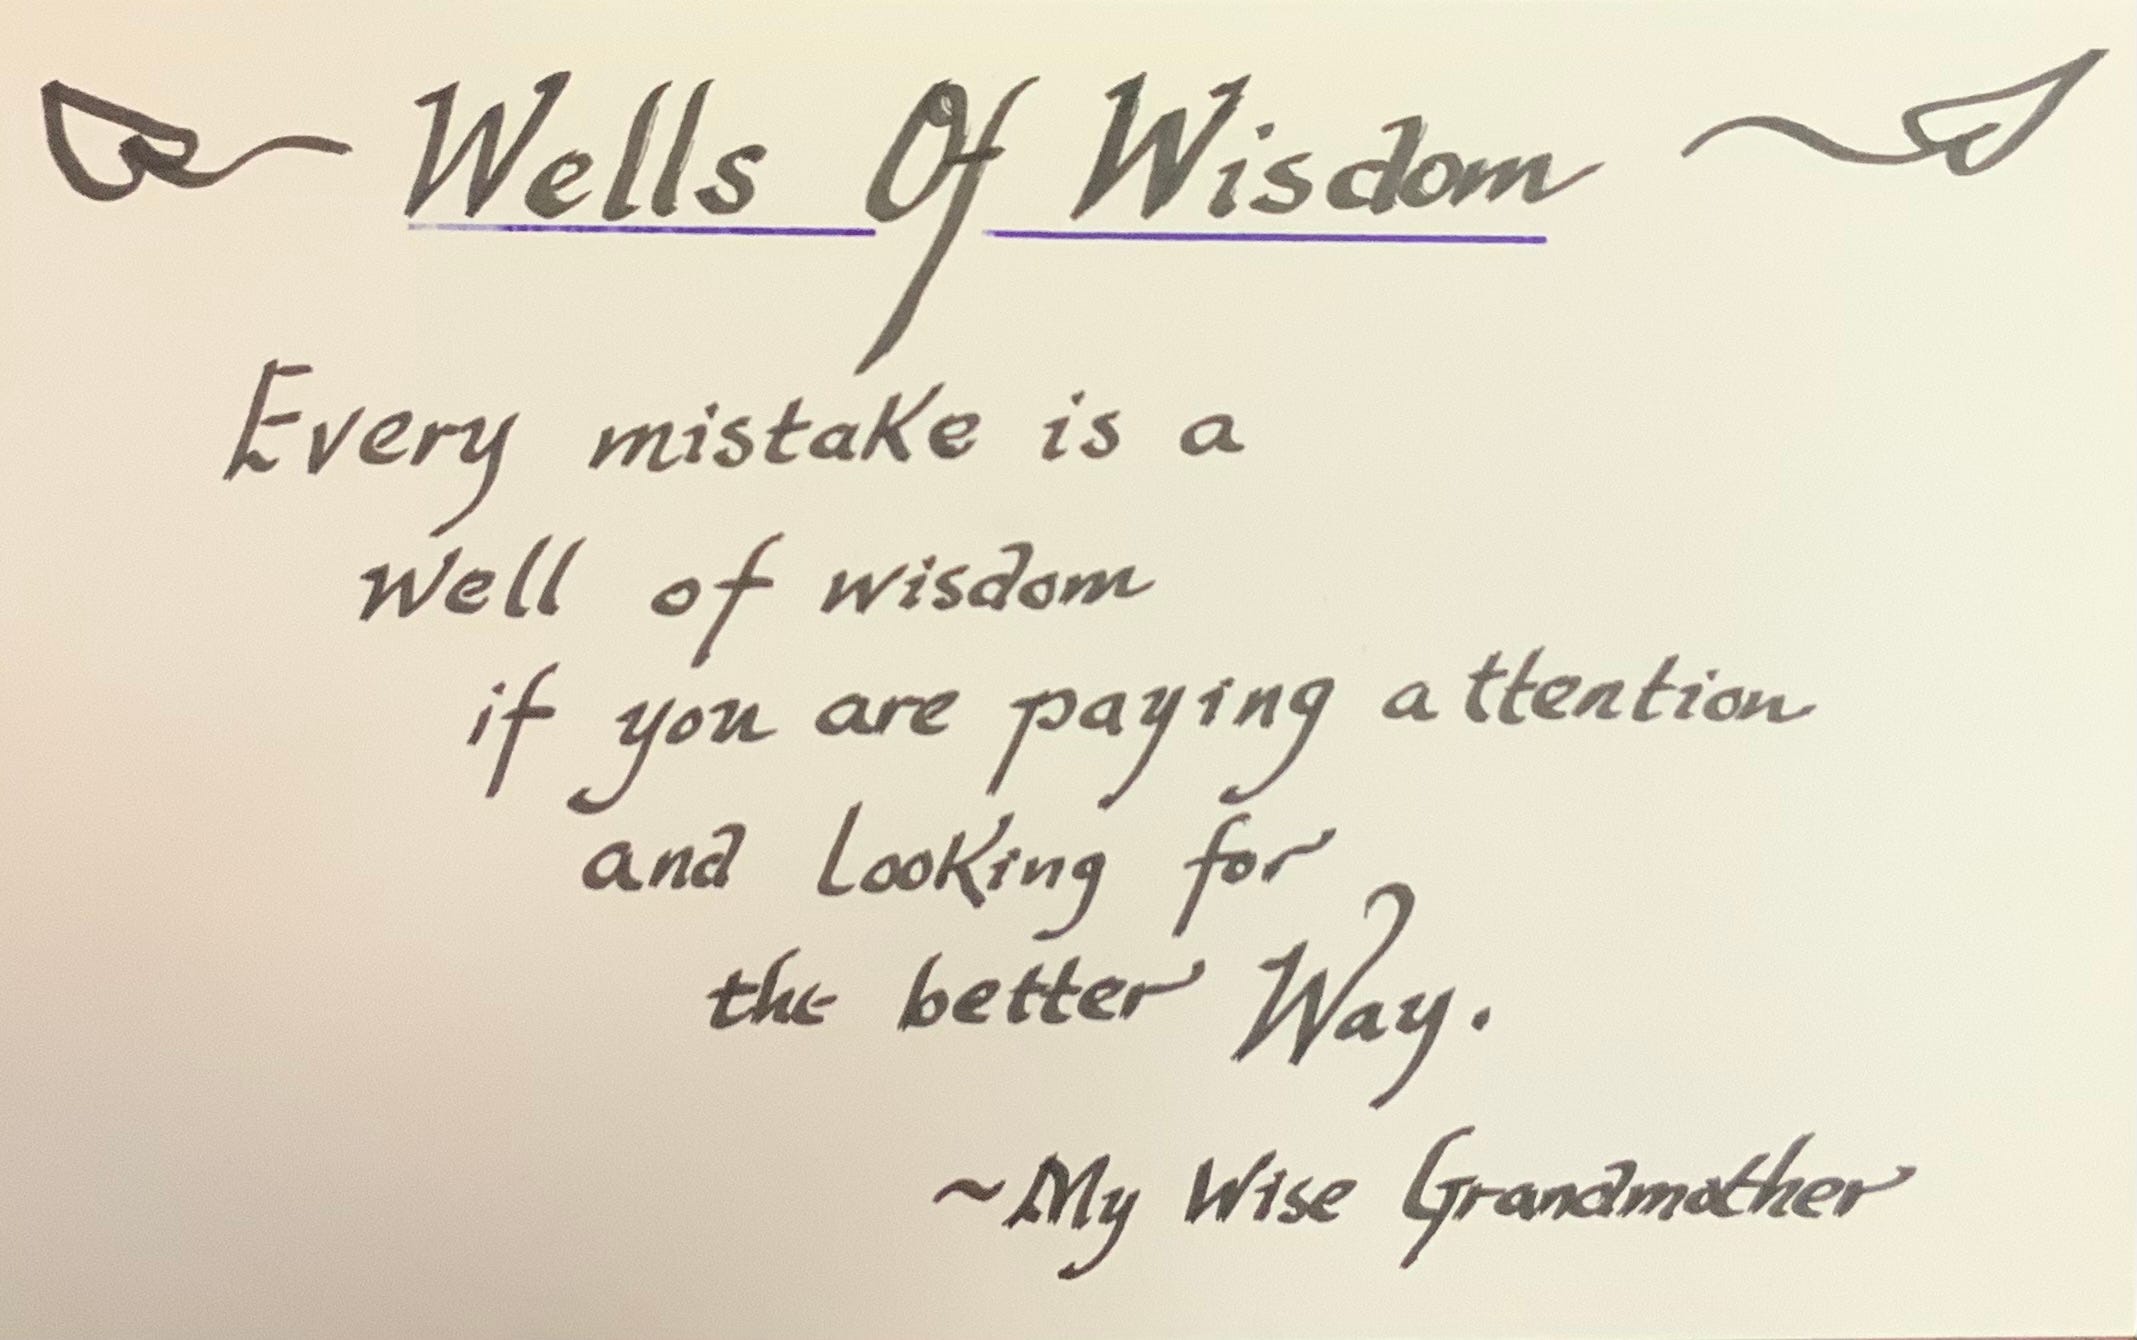 Wells Of Wisdom
Every mistake is a
well of wisdom
if you are paying attention
and looking for
the better Way.
~My Wise Grandmother